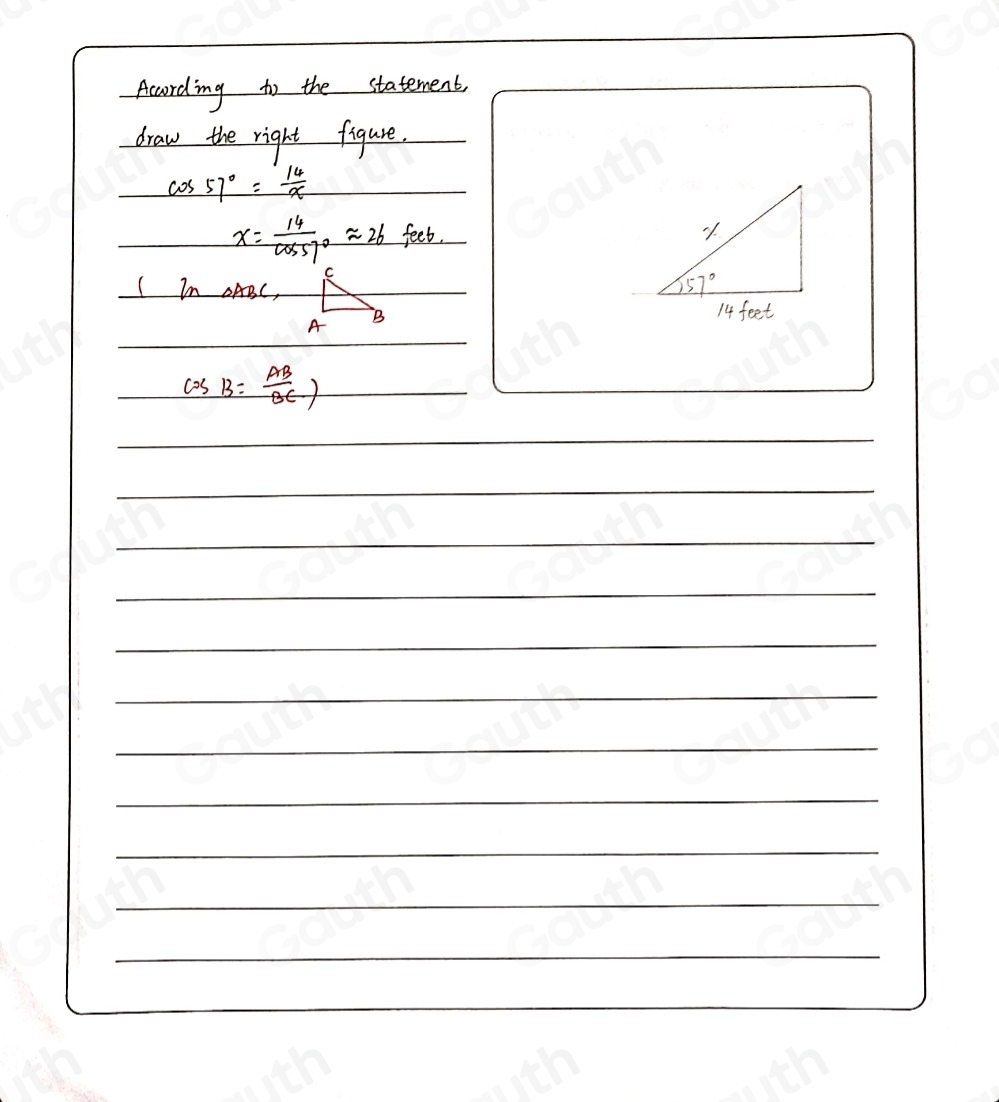 According to the statement,
draw the right figure.
cos 57° = 14/x
x = 14/cos57° ≈ 26 feet.
( In △ABC,
C
A
B
cos B = AB/BC.)
x
57°
14 feet
Gauth